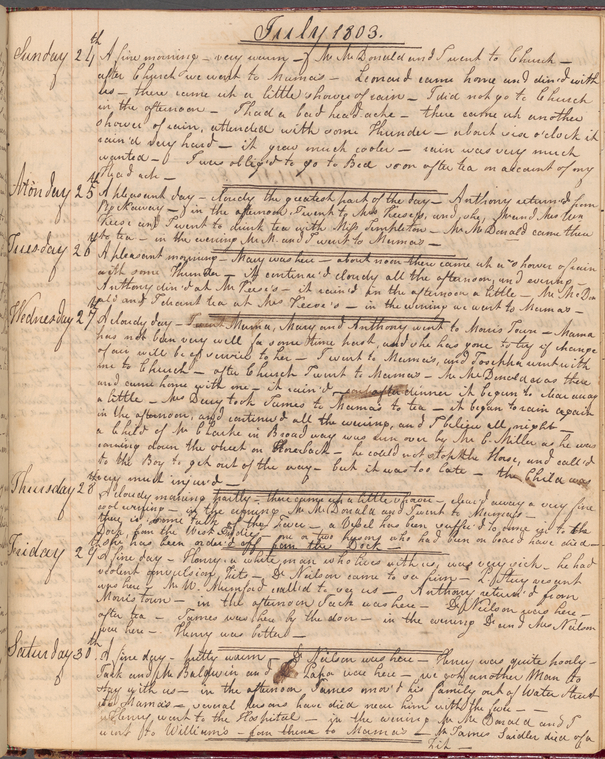 July 1803.
Sunday 24th A fine morning - very warm - Mr McDonald and I went to Church -
after Church we went to Mama's - Leonard came home and din'd with
us - there came up a little shower of rain - I did not go to Church
in the afternoon - I had a bad head ache - there came up another
shower of rain, attended with some Thunder - about six o'clock it
rain'd very hard - it grew much cooler - rain was very much
wanted - I was oblig'd to go to Bed soon after tea on account of my
Head ach -
Monday 25th A pleasant day - cloudy the greatest part of the day - Anthony return'd from
Rockaway - in the afternoon I went to Mrs and she, and Mrs Wm
and I went to drink tea with Miss Templeton - Mr McDonald came there
to tea - in the evening Mr M. and I went to Mama's -
Tuesday 26th A pleasant morning - Mary was here - about noon there came up a shower of rain
with some Thunder - it continu'd cloudy all the afternoon, and evening -
Anthony din'd at Mr - it rain'd in the afternoon a little - Mr McDon
ald and I drank tea at Mrs - in the evening we went to Mama's -
Wednesday 27th A cloudy day - Mama, Mary and Anthony went to Morris Town - Mama
has not been very well for some time past, and she has gone to try if change
of air will be of service to her - I went to Mama's, and Josepha went with
me to Church - after Church I went to Mama's - Mr McDonald was there
and came home with me - it rain'd after dinner it began to clear away
a little - Mrs took James to Mama's to tea - it began to rain again
in the afternoon, and continu'd all the evening, and I believe all night -
a Child of Mr Clarke in Broad way was run over by Mr C. Miller as he was
coming down the street on Horseback - he could not stop the Horse, and call'd
to the Boy to get out of the way - but it was too late - the Child was
very much injur'd -
Thursday 28th A cloudy morning partly - there came up a little shower - clear'd away a very fine
cool evening - in the evening Mr McDonald and I went to Mama's -
there is some talk of the Fever - a Vessel has been suffer'd to come up to the
Dock from the West Indies - one or two persons who had been on board have died -
has been order'd off from the Dock -
Friday 29th A fine day - Henry, a white man who lives with us, was very sick - he had
violent convulsion fits - Dr Neilson came to see him - was here - Mr W. Mumford call'd to see us - Anthony return'd from
Morris town - in the afternoon Jack was here - Dr Neilson was here
after tea - James was here by the door - in the evening Dr and Mrs Neilson
were here - Henry was better -
Saturday 30th A fine day - pretty warm - Dr Neilson was here - Henry was quite poorly -
Jack and Mr Baldwin and Papa were here - we got another Man to
stay with us - in the afternoon James mov'd his family out of Water Street
to Mama's - several persons have died near him with the fever -
Henry went to the Hospital - in the evening Mr McDonald and I
went to William's - from thence to Mama's - Mr James Saidler died of a
Fit -